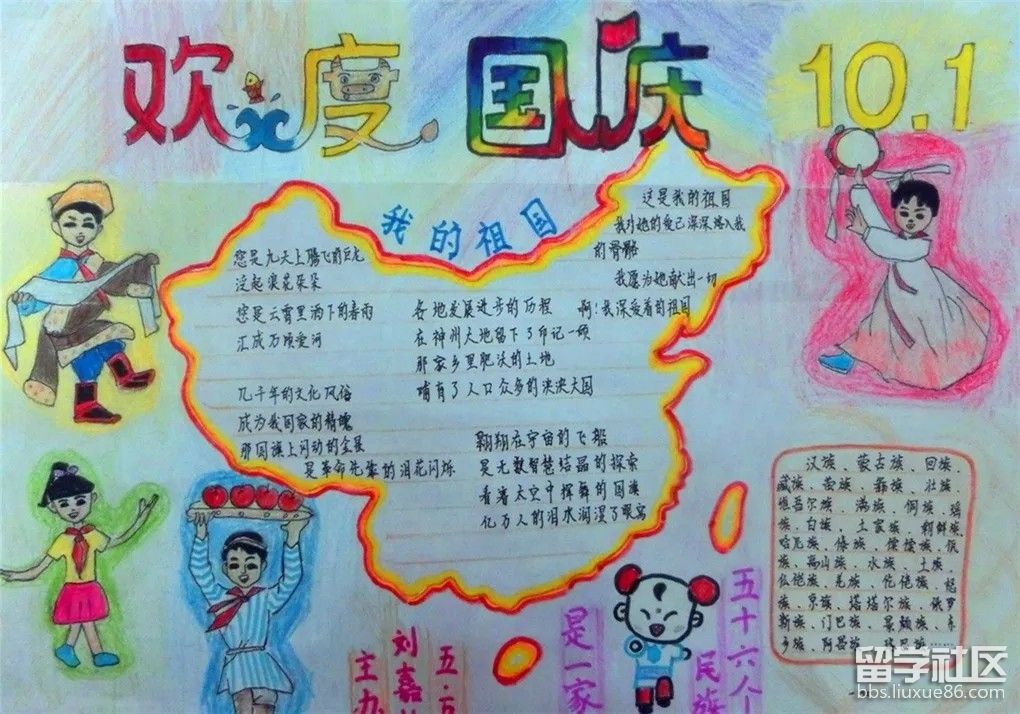 欢度国庆 10.1
我的祖国
您是九天上腾飞的巨龙
泛起浪花朵朵
您是云霄里洒下的春雨
汇成万顷爱河
几千年的文化风俗
成为我国家的精魂
那国旗上闪动的金星
是革命先辈的泪花闪烁
各地发展进步的历程
在神州大地留下了印记一颗
那家乡里肥沃的土地
哺育了人口众多的泱泱大国
翱翔在宇宙的飞船
是无数智慧结晶的探索
看着太空中挥舞的国旗
亿万人的泪水润湿了眼窝
这是我的祖国
我对她的爱已深深溶入我
的骨骼
我愿为她献出一切
啊!我深爱着的祖国
汉族、蒙古族、回族、
藏族、苗族、彝族、壮族、
维吾尔族、满族、侗族、瑶
族、白族、土家族、朝鲜族、
哈尼族、傣族、傈僳族、佤
族、高山族、水族、土族、
仫佬族、羌族、仡佬族、
族、京族、塔塔尔族、俄罗
斯族、门巴族、
族、阿昌族、
五十六个
民族
是一家
五·
刘嘉
主办
留学社区
bbs.liuxue86.com